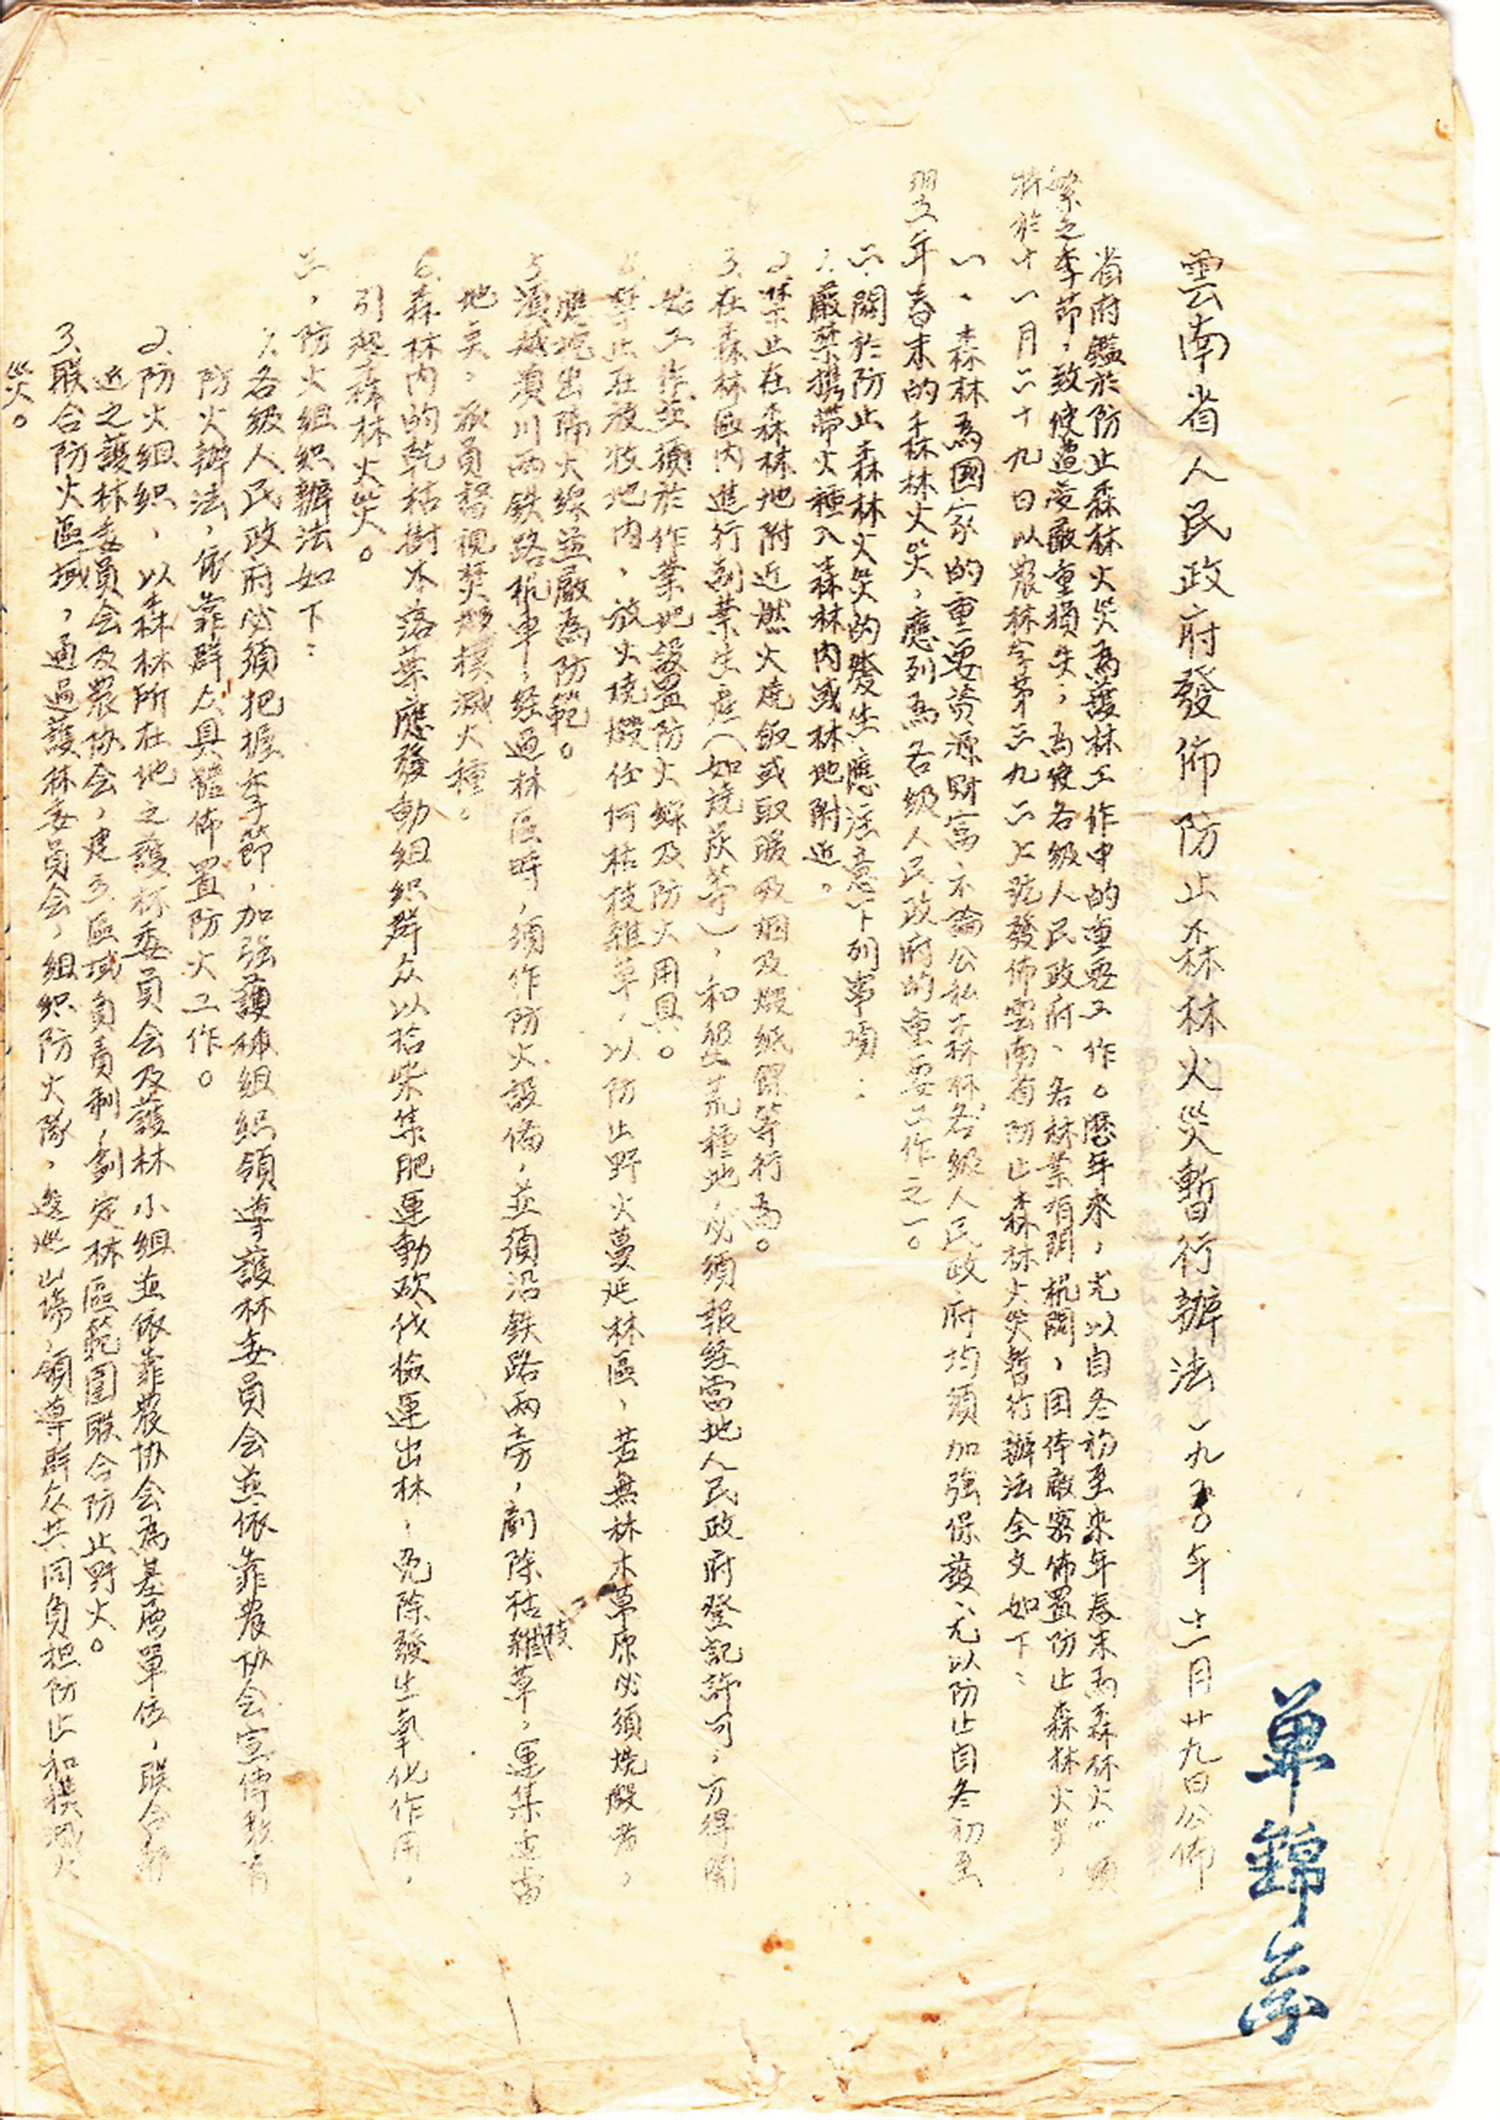 雲南省人民政府發佈防止森林火災暫行辦法 一九五〇年十一月廿九日公佈
省府鑑於防止森林火災為護林工作中的重要工作。歷年來，尤以自冬初至來年春末為森林火災頻
繁之季節，致使遭受嚴重損失，為使各級人民政府、各林業有関机關，団体嚴密佈置防止森林火災，
特於十一月二十九日以農林字第三九二七號發佈雲南省防止森林火災暫行辦法全文如下：
一、森林為國家的重要資源財富不論公私森林各級人民政府均須加強保護，尤以防止自冬初至
翌年春末的森林火災，應列為各級人民政府的重要工作之一。
二、關於防止森林火災的發生應注意下列事項：
1.嚴禁携帶火種入森林內或林地附近。
2.禁止在森林地附近燃火燒飯或取暖吸烟及燬紙錁等行為。
3.在森林區內進行副業生產（如燒炭等），和墾荒種地，必須報経當地人民政府登記許可，方得開
始工作並須於作業地設置防火線及防火用具。
4.禁止在放牧地內，放火燒燬任何枯枝雜草，以防止野火蔓延林區，若無林木草原必須燒燬者，
應先出隔火線並嚴為防範。
5.滇越滇川兩铁路机車，経過林區時，須作防火設備，並須沿铁路兩旁，剷除枯枝雜草，運集適當
地奌，派員監視焚燬撲滅火種。
6.森林內的乾枯樹木落葉應發動組織群众以拾柴集肥運動砍伐檢運出林，免除發生氧化作用，
引起森林火災。
三，防火組織辦法如下：
1.各級人民政府必須把握季節，加強護林組織領導護林委員会並依靠農协会宣傳教育
防火辦法，依靠群众具體佈置防火工作。
2.防火組織，以森林所在地之護林委員会及護林小組並依靠農协会為基層單位，联合鄰
近之護林委員会及農协会，建立區域負責制，劃定林區範圍联合防止野火。
3.联合防火區域，通過護林委員会，組織防火隊，巡山場，領導群众共同負担防止和撲滅火
災。
單錦